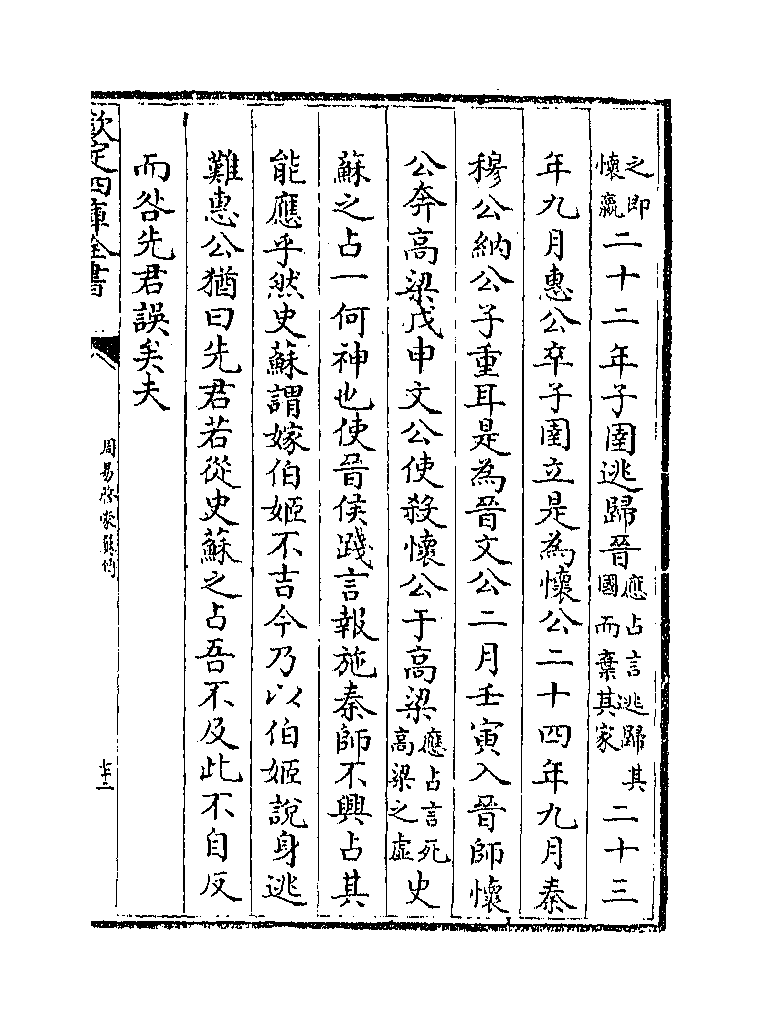 之即懷嬴二十二年子圉逃歸晉應占言逃歸其國而棄其家二十三
年九月惠公卒子圉立是為懷公二十四年九月秦
穆公納公子重耳是為晉文公二月壬寅入晉師懷
公奔高梁戊申文公使殺懷公于高梁應占言死高梁之虛史
蘇之占一何神也使晉侯踐言報施秦師不興占其
能應乎然史蘇謂嫁伯姬不吉今乃以伯姬說身逃
難惠公猶曰先君若從史蘇之占吾不及此不自反
而咎先君誤矣夫
欽定四庫全書
周易啓蒙翼傳